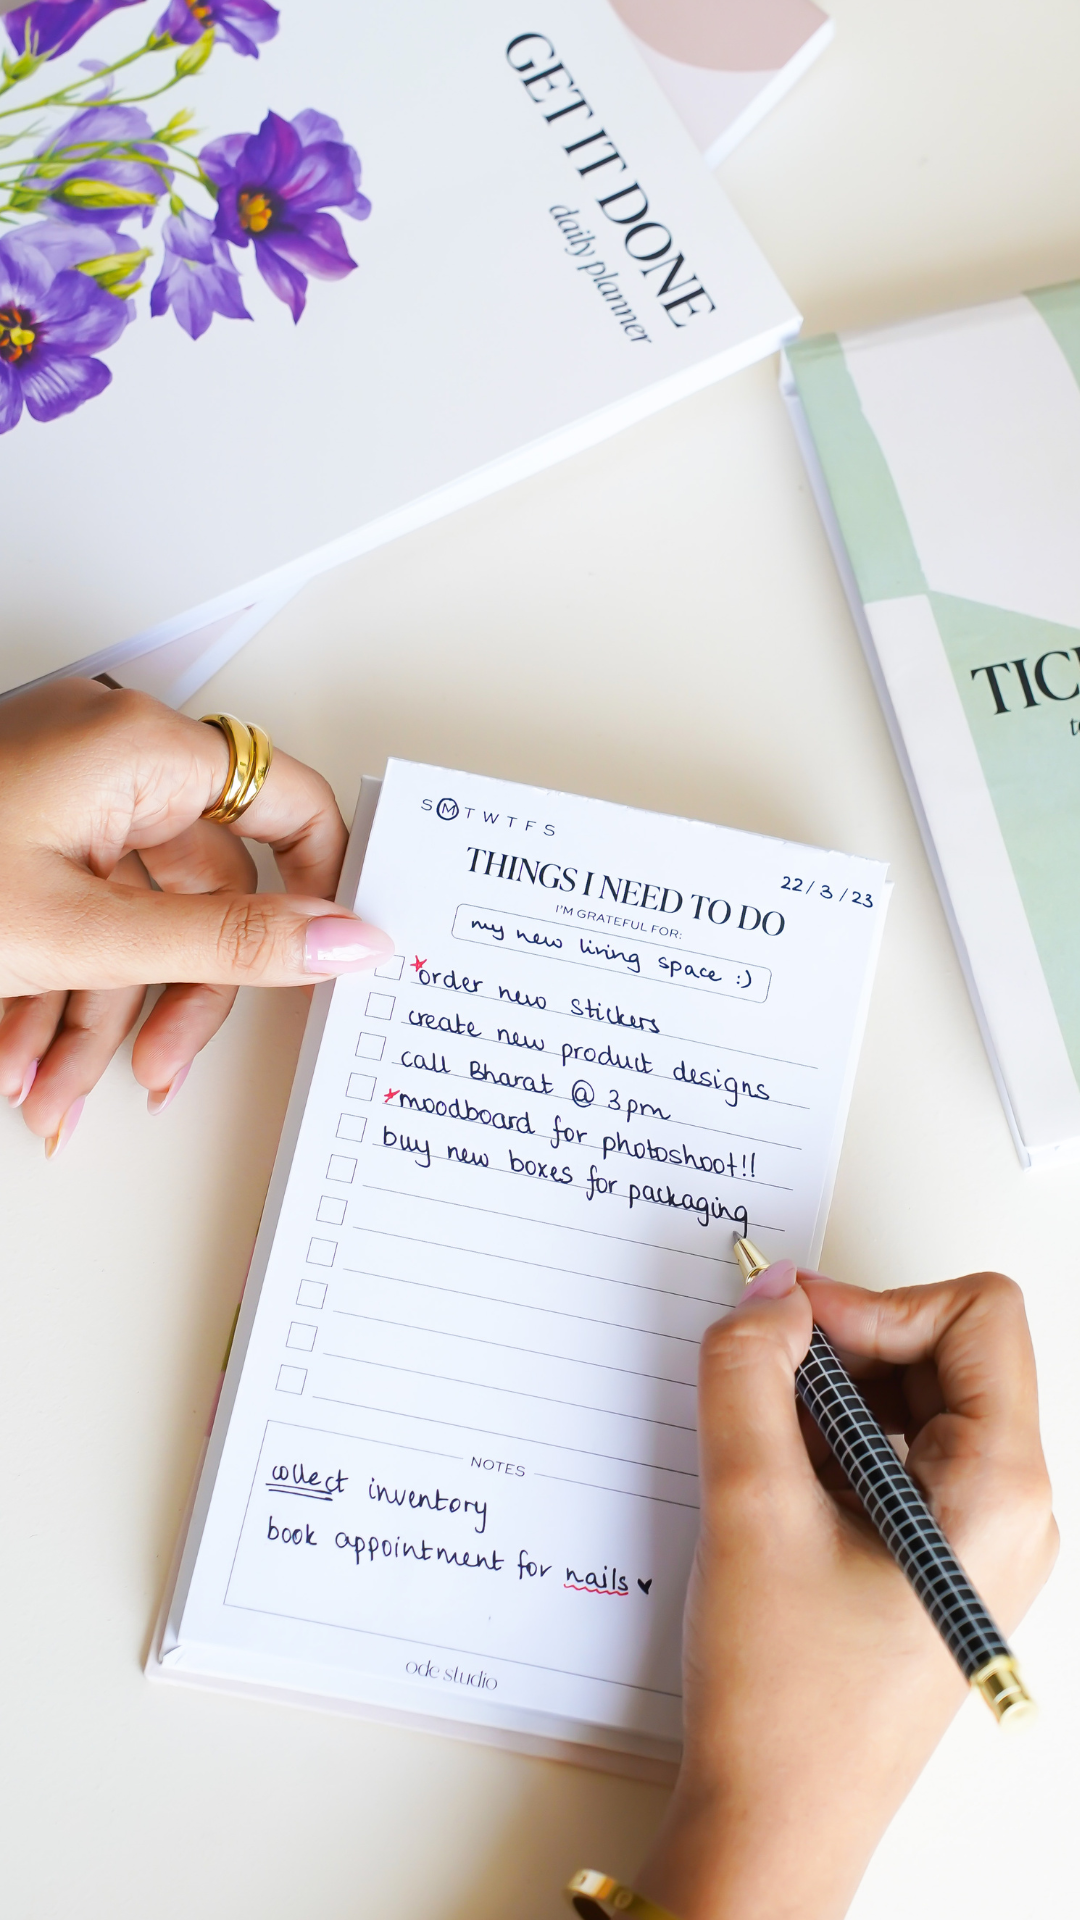 GET IT DONE
daily planner
S M T W T F S
THINGS I NEED TO DO
22/3/23
I'M GRATEFUL FOR:
my new living space :)
order new stickers
create new product designs
call Bharat @ 3pm
moodboard for photoshoot!!
buy new boxes for packaging
NOTES
collect inventory
book appointment for nails ♥
ode studio